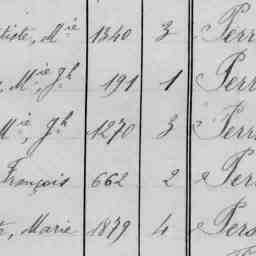 tiste, Mie 1340 3 Perr
, Mie, Jh 191 1 Perr
Mie, Jh 1270 3 Perr
François 662 2 Per
, Marie 1879 4 Pers